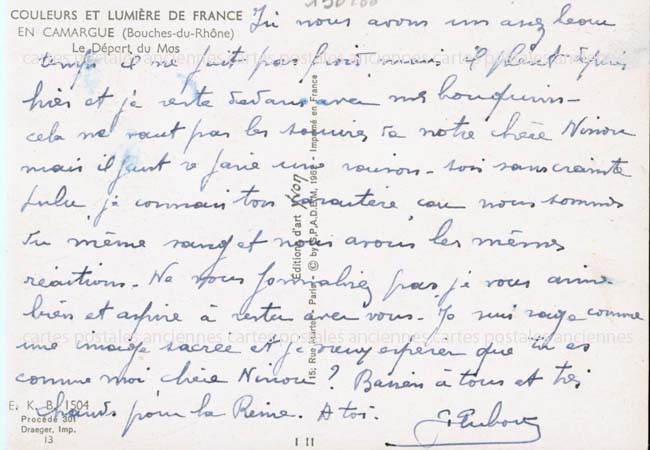 COULEURS ET LUMIÈRE DE FRANCE
EN CAMARGUE (Bouches-du-Rhône)
Le Départ du Mas
Ici nous avons un assez beau
temps il ne fait pas froid mais il pleut depuis
hier et je reste dedans avec mes bouquins -
cela ne vaut pas les sourires de notre chère Ninou
mais il faut se faire une raison - sois sans crainte
Lulu je connais ton caractère car nous sommes
du même sang et nous avons les mêmes
réactions - Ne vous formalisez pas je vous aime
bien et aspire à rester avec vous. Je suis sage comme
une image sacrée et je veux espérer que tu es
comme moi chère Ninou ? Baisers à tous et très
chauds pour la Reine. A toi.
E. K. B. 1504
Procédé 301
Draeger, Imp.
13
Éditions d'art Yvon
15, Rue Martel - Paris - © by S.P.A.D.E.M. - Imprimé en France
cartes postales anciennes cartes postales anciennes cartes postales anciennes
cartes postales anciennes cartes postales anciennes cartes postales anciennes